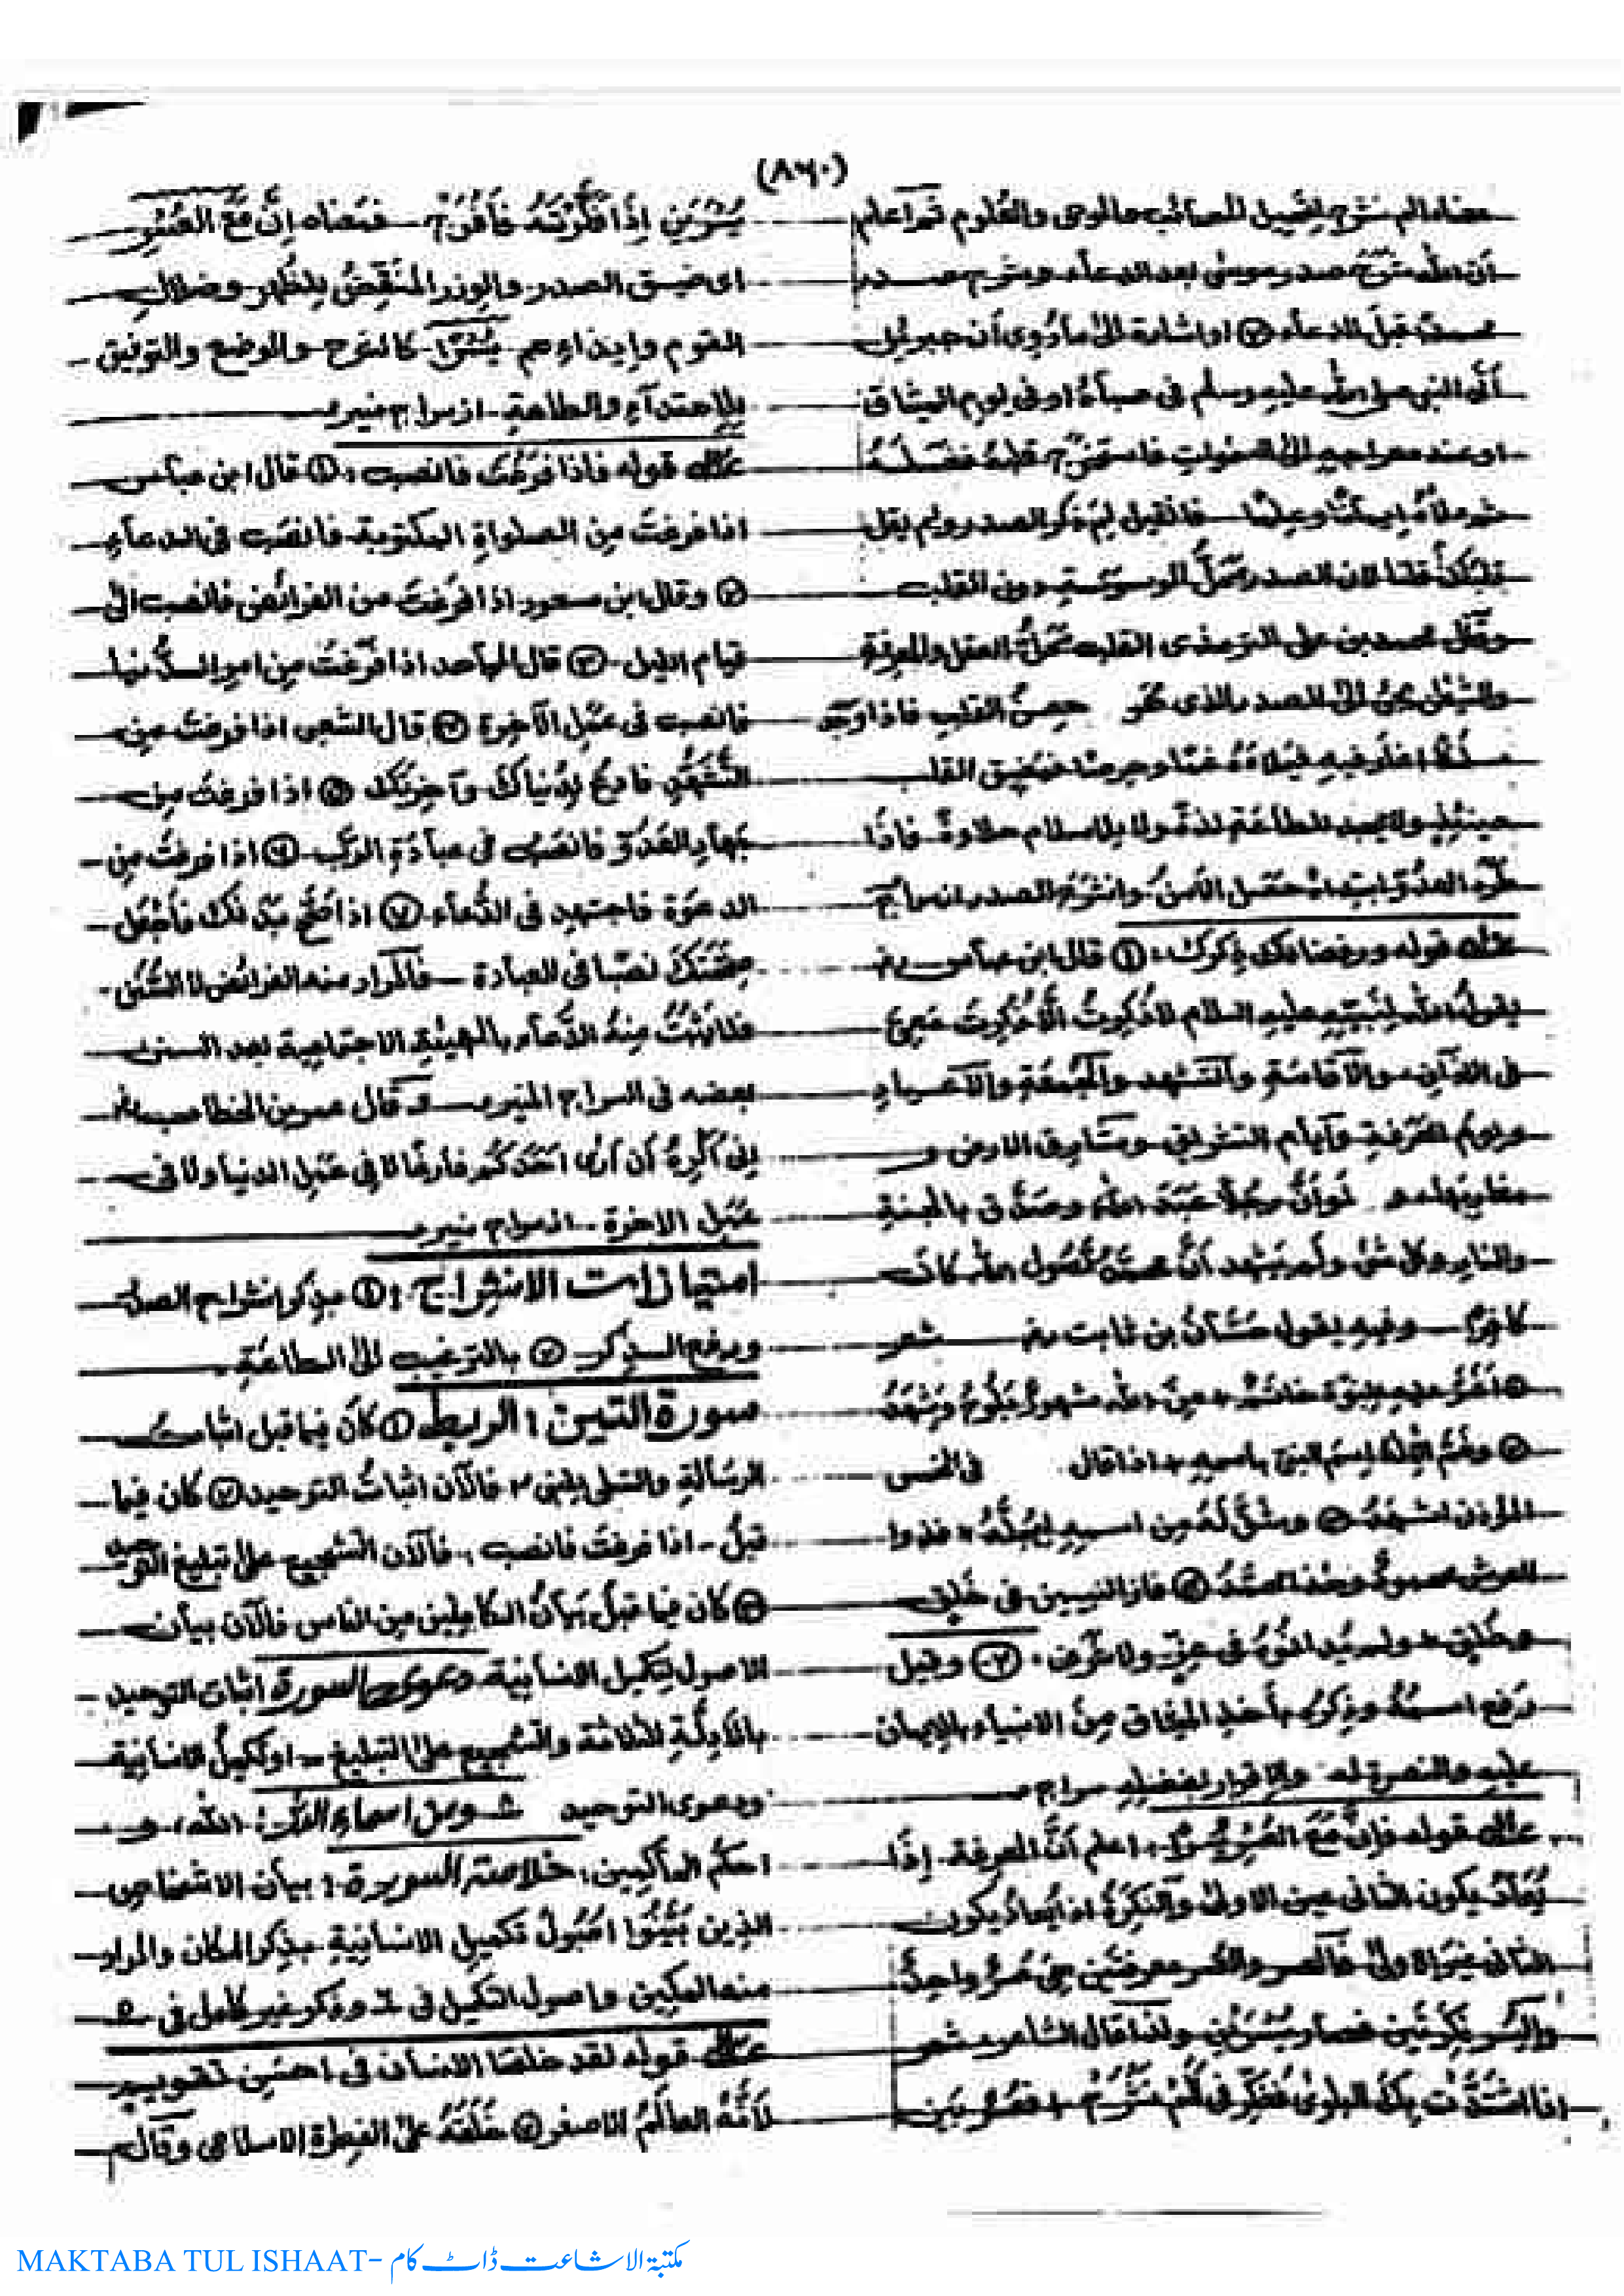 (٨٦٠)
معناه الم نشرح لتحمل المصائب والوحى والعُلوم ثم اعلم
أن الله شرَحَ صدر موسىٰ بعد الدعاء وشرح صدر
محمدٍ قبلَ الدعاء ② او اشارة الىٰ ما رُوِى أن جبرئيل
أتى النبى صلى الله عليه وسلم فى صباهُ او فى يوم الميثاق
او عند معراجه الى فاستخرج قلبَهُ فغسلَهُ
ثم ملأهُ إيمانًا وعلمًا فان قيل لِمَ ذكر الصدر ولم يقل
قلبَكَ قلنا لان الصدر محلُّ الوسوسة دون القلب
وقال محمد بن على الترمذى القلب محلُّ العقل والمعرفة
والشيطٰن يجئ الى الصدر الذى هو حصنُ القلب فاذا وجد
اغار فيه فيضيق القلب
حينئذٍ ولا يجد للطاعة لذةً ولا للاسلام حلاوةً فاذا
طرد العدوَّ حصل الأمنُ وانشرح الصدر سراج
قوله ورفعنا لك ذكرك: ① قال ابن عباس رض
يقول الله لنبيه عليه السلام لا ذُكِرتُ الّا ذُكِرتَ معى
فى الاذان والاقامة والتشهد والجمعة والاعياد
ويوم العرفة وايام التشريق ومشارق الارض و
مغاربها ولو أنَّ رجلاً عبَدَ الله وصدَّق بالجنة
والنار وكل شئ ولم يشهد أنَّ محمدًا رسول الله كان
كافرًا وفيه يقول حسّان بن ثابت رض شعر
① اغرُّ عليه للنبوة خاتمٌ ؞ من الله مشهورٌ يلوحُ ويشهَدُ
② وضَمَّ الإلٰهُ اسمَ النبى باسمه ؞ اذا قال فى الخمس
المؤذن اشهَدُ ③ وشقَّ لَهُ مِن اسمه ليُجِلَّهُ ؞ فذوا
العرش محمودٌ وهٰذا محمَّدُ ④ فاز النبيين فى خَلق
وخُلق ؞ ولم يُدانوهُ فى علمٍ ولا كرم، ② وقيل
رفع اسمهُ وذِكرُه بأخذ الميثاق مِنُ الانبياء بالإيمان
عليه والنصرة له والاقرار بفضله سراج
قوله فإنَّ مَعَ العُسْرِ يُسْرًا، اعلم أنَّ المعرفة إذا
تُعادُ يكون الثانى عين الاولىٰ والنكرَةُ اذا تُعادُ يكون
الثانى غيرَ الاولىٰ فالعسر والعسر معرفتين هى عسرٌ واحدٌ
واليُسر نكرتين فصار يُسرَيْن ولذا قال الشاعر شعر
اذا اشتدَّت بك البلوىٰ ففكِّر فى ألم نَشْرَحْ ؞ فعُسرٌ بَين
يُسْرَيْنِ إذَا فكَّرْتَهُ فافْرَحْ فمعناه إنَّ مَعَ العُسْرِ
اى ضيق الصدر والوزر المُنقِضُ للظهر وضلال
القوم وإيذاءهم يُسْرًا كالشرح والوضع والتوفيق
للاهتداء والطاعة ـ از سراج منير
قوله فاذا فرغتَ فانصب: ① قال ابن عباس
اذا فرغتَ من الصلواةِ المكتوبة فانصَب فى الدعاء
② وقال ابن مسعود اذا فرغتَ من الفرائض فانصب الى
قيام الليل ③ قال المجاهد اذا فرغتَ مِن امور الدُّنيا
فانصب فى عمَلِ الآخِرة ④ قال الشعبى اذا فرغتَ مِن
التشهُّدِ فادعُ لِدُنياكَ وآخِرَتِكَ ⑤ اذا فرغتَ مِن
جهاد العدوِّ فانصَب فى عبادَةِ الرَّب ⑥ اذا فرغتَ مِن
الدعوَة فاجتهِد فى الدُّعاء ⑦ اذا صَحَّ بدَنُكَ فاجعَل
صِحَّتَكَ نصَبًا فى العبادة ـ فالمراد منه الفرائض لا السُّنَن
فلا يَثبُتُ مِنهُ الدُّعاء بالهيئة الاجتماعية بعد السنن
بعضه فى السراج المنير و قال عمر بن الخطاب رض
إنى أكرَهُ أن أرىٰ احَدَكُم فارغًا لا فى عمَلِ الدنيا ولا فى
عمَلِ الاخرة ـ از سراج منير
امتيازات الانشراح: ① بذِكر انشراح الصدر
ورفع الذِكر ② بالترغيب الىٰ الطاعَةِ
سورة التين: الربط ① كان فيما قبل اثبات
الرسالة والتسلى للنبى فالآن اثباتُ التوحيد ② كان فيما
قبلُ ـ اذا فرغتَ فانصب، فالآن التشجيع علىٰ تبليغ التوحيد
③ كان فيما قبلُ بيانُ الكاملِين مِن الناس فالآن بيان
الاصول لتكميل الانسانية دعوى السورة اثبات التوحيد
بالادِلَّةِ الثلاثة والتشجيع على التبليغ ـ او تكميلُ الانسانية
ودعوى التوحيد اسماء الله: الله، رب
احكمُ الحاكمين، خلاصة السورة: بيان الاشخاص
الذين بيَّنُوا اصُولَ تكميلِ الانسانية بذِكر المكان والمراد
منه المكين واصول التكميل فى ٦ وذكر غير كامل فى ٥
قوله لقد خلقنا الانسان فى احسن تقويم
لأنَّهُ العالَمُ الاصغر ② خلَقَهُ على الفِطرة الاسلامى وقال
MAKTABA TUL ISHAAT- مکتبۃ الاشاعت ڈاٹ کام